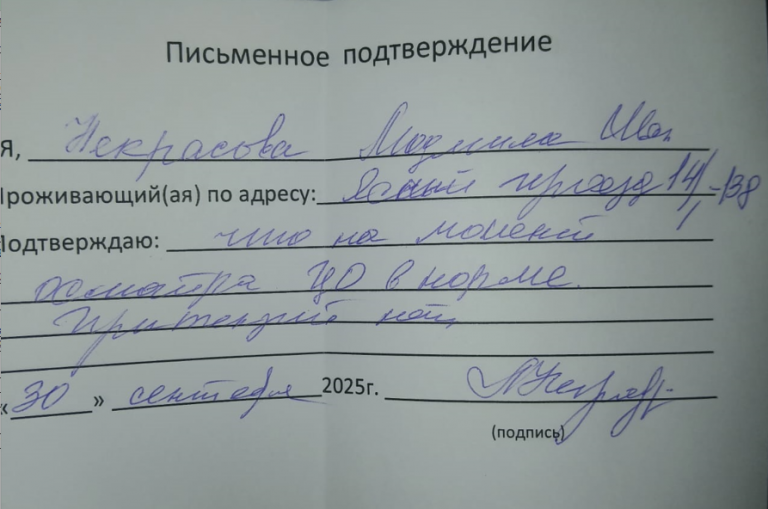 Письменное подтверждение
Я, Некрасова Людмила Иван
Проживающий(ая) по адресу: Ясный проезд 14/1-138
Подтверждаю: что на момент
осмотра ЦО в норме.
Притензий нет
«30» сентября 2025г.
(подпись)